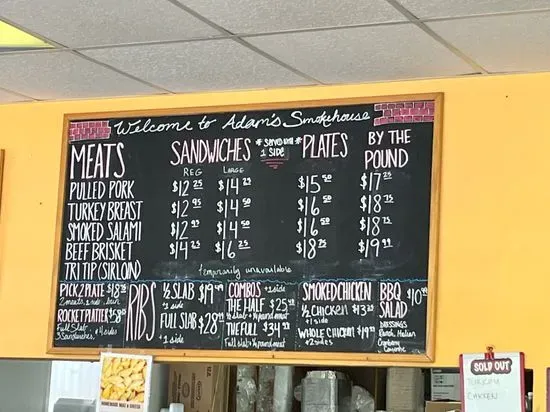 Welcome to Adam's Smokehouse
MEATS SANDWICHES *SERVED WITH 1 SIDE* PLATES BY THE POUND
REG LARGE
PULLED PORK $12 25 $14 25 $15 50 $17 25
TURKEY BREAST $12 95 $14 50 $16 50 $18 75
SMOKED SALAMI $12 95 $14 50 $16 50 $18 75
BEEF BRISKET $14 25 $16 25 $18 75 $19 99
TRI TIP (SIRLOIN) temporarily unavailable
PICK 2 PLATE
2 meats, 1 side, bun
ROCKET PLATTER
Full Slab
3 Sandwiches, 4 sides
RIBS
½ SLAB
1 side
FULL SLAB $28 99
1 side
COMBOS +1 side
THE HALF $25 49
½ slab + ½ pound meat
THE FULL $34 99
Full slab + ½ pound meat
SMOKED CHICKEN
½ CHICKEN
+1 side
WHOLE CHICKEN $19 99
+2 sides
BBQ SALAD $10 99
DRESSINGS
Ranch, Italian
Cranberry Cayenne
HOMEMADE MAC & CHEESE
SOLD OUT
TURKEY
CHICKEN